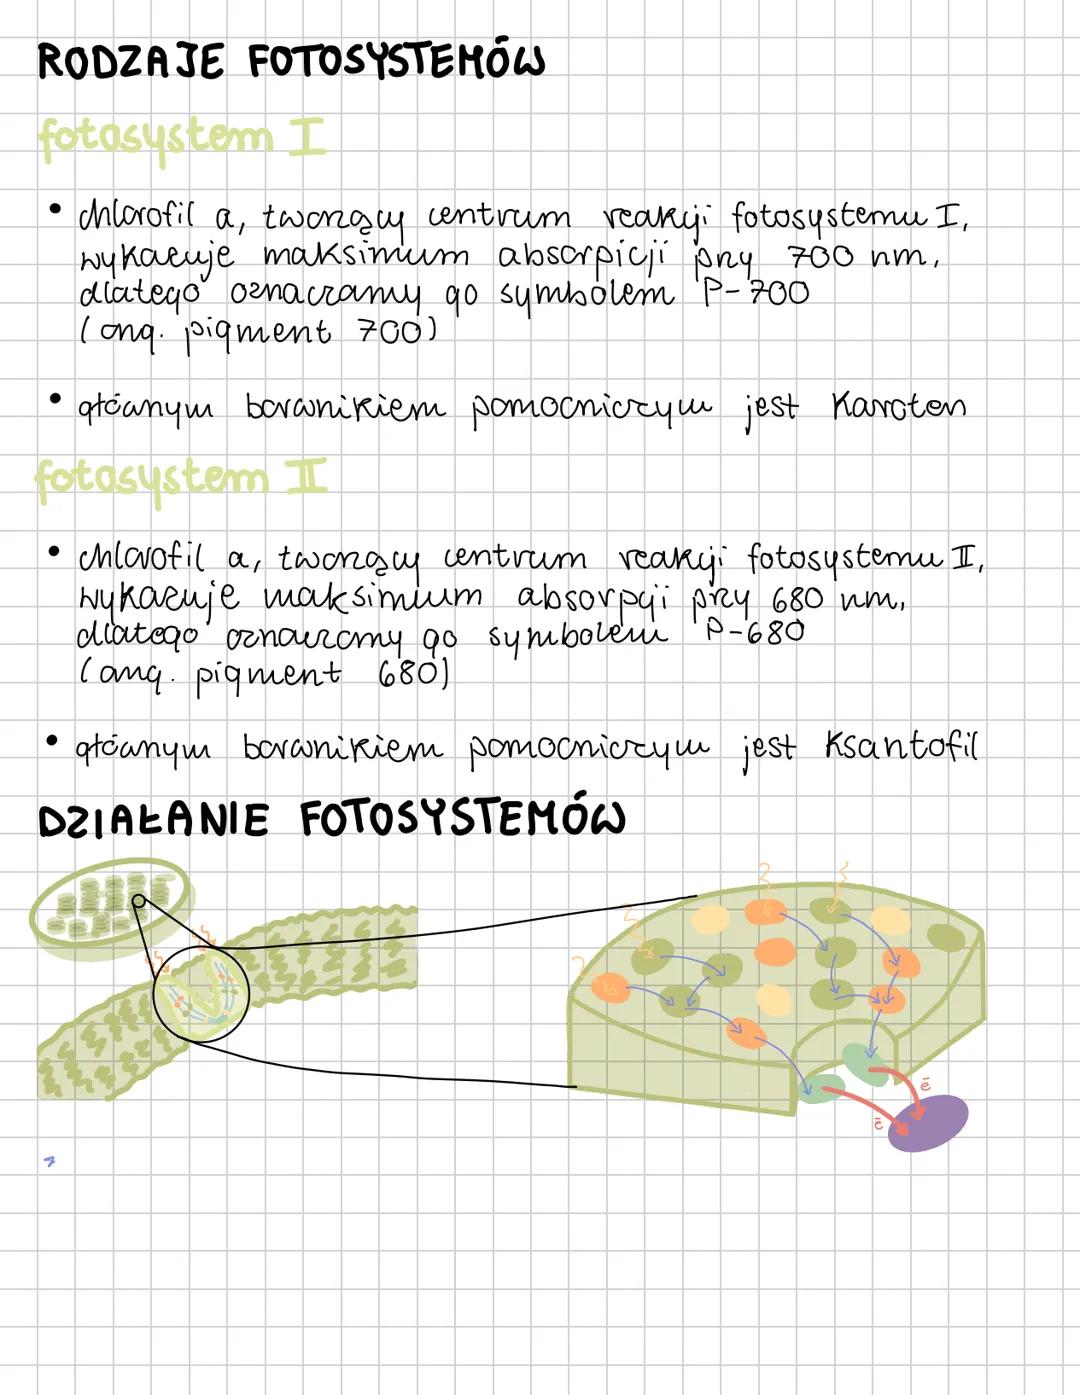 RODZAJE FOTOSYSTEMÓW
fotosystem I
• chlorofil a, tworzący centrum reakcji fotosystemu I,
wykazuje maksimum absorpicji przy 700 nm,
dlatego oznaczamy go symbolem P-700
(ang. pigment 700)
• głównym barwnikiem pomocniczym jest karoten
fotosystem II
• chlorofil a, tworzący centrum reakcji fotosystemu II,
wykazuje maksimium absorpcji przy 680 nm,
dlatego oznaczamy go symbolem P-680
(ang. pigment 680)
• głównym barwnikiem pomocniczym jest ksantofil
DZIAŁANIE FOTOSYSTEMÓW
ē
ē